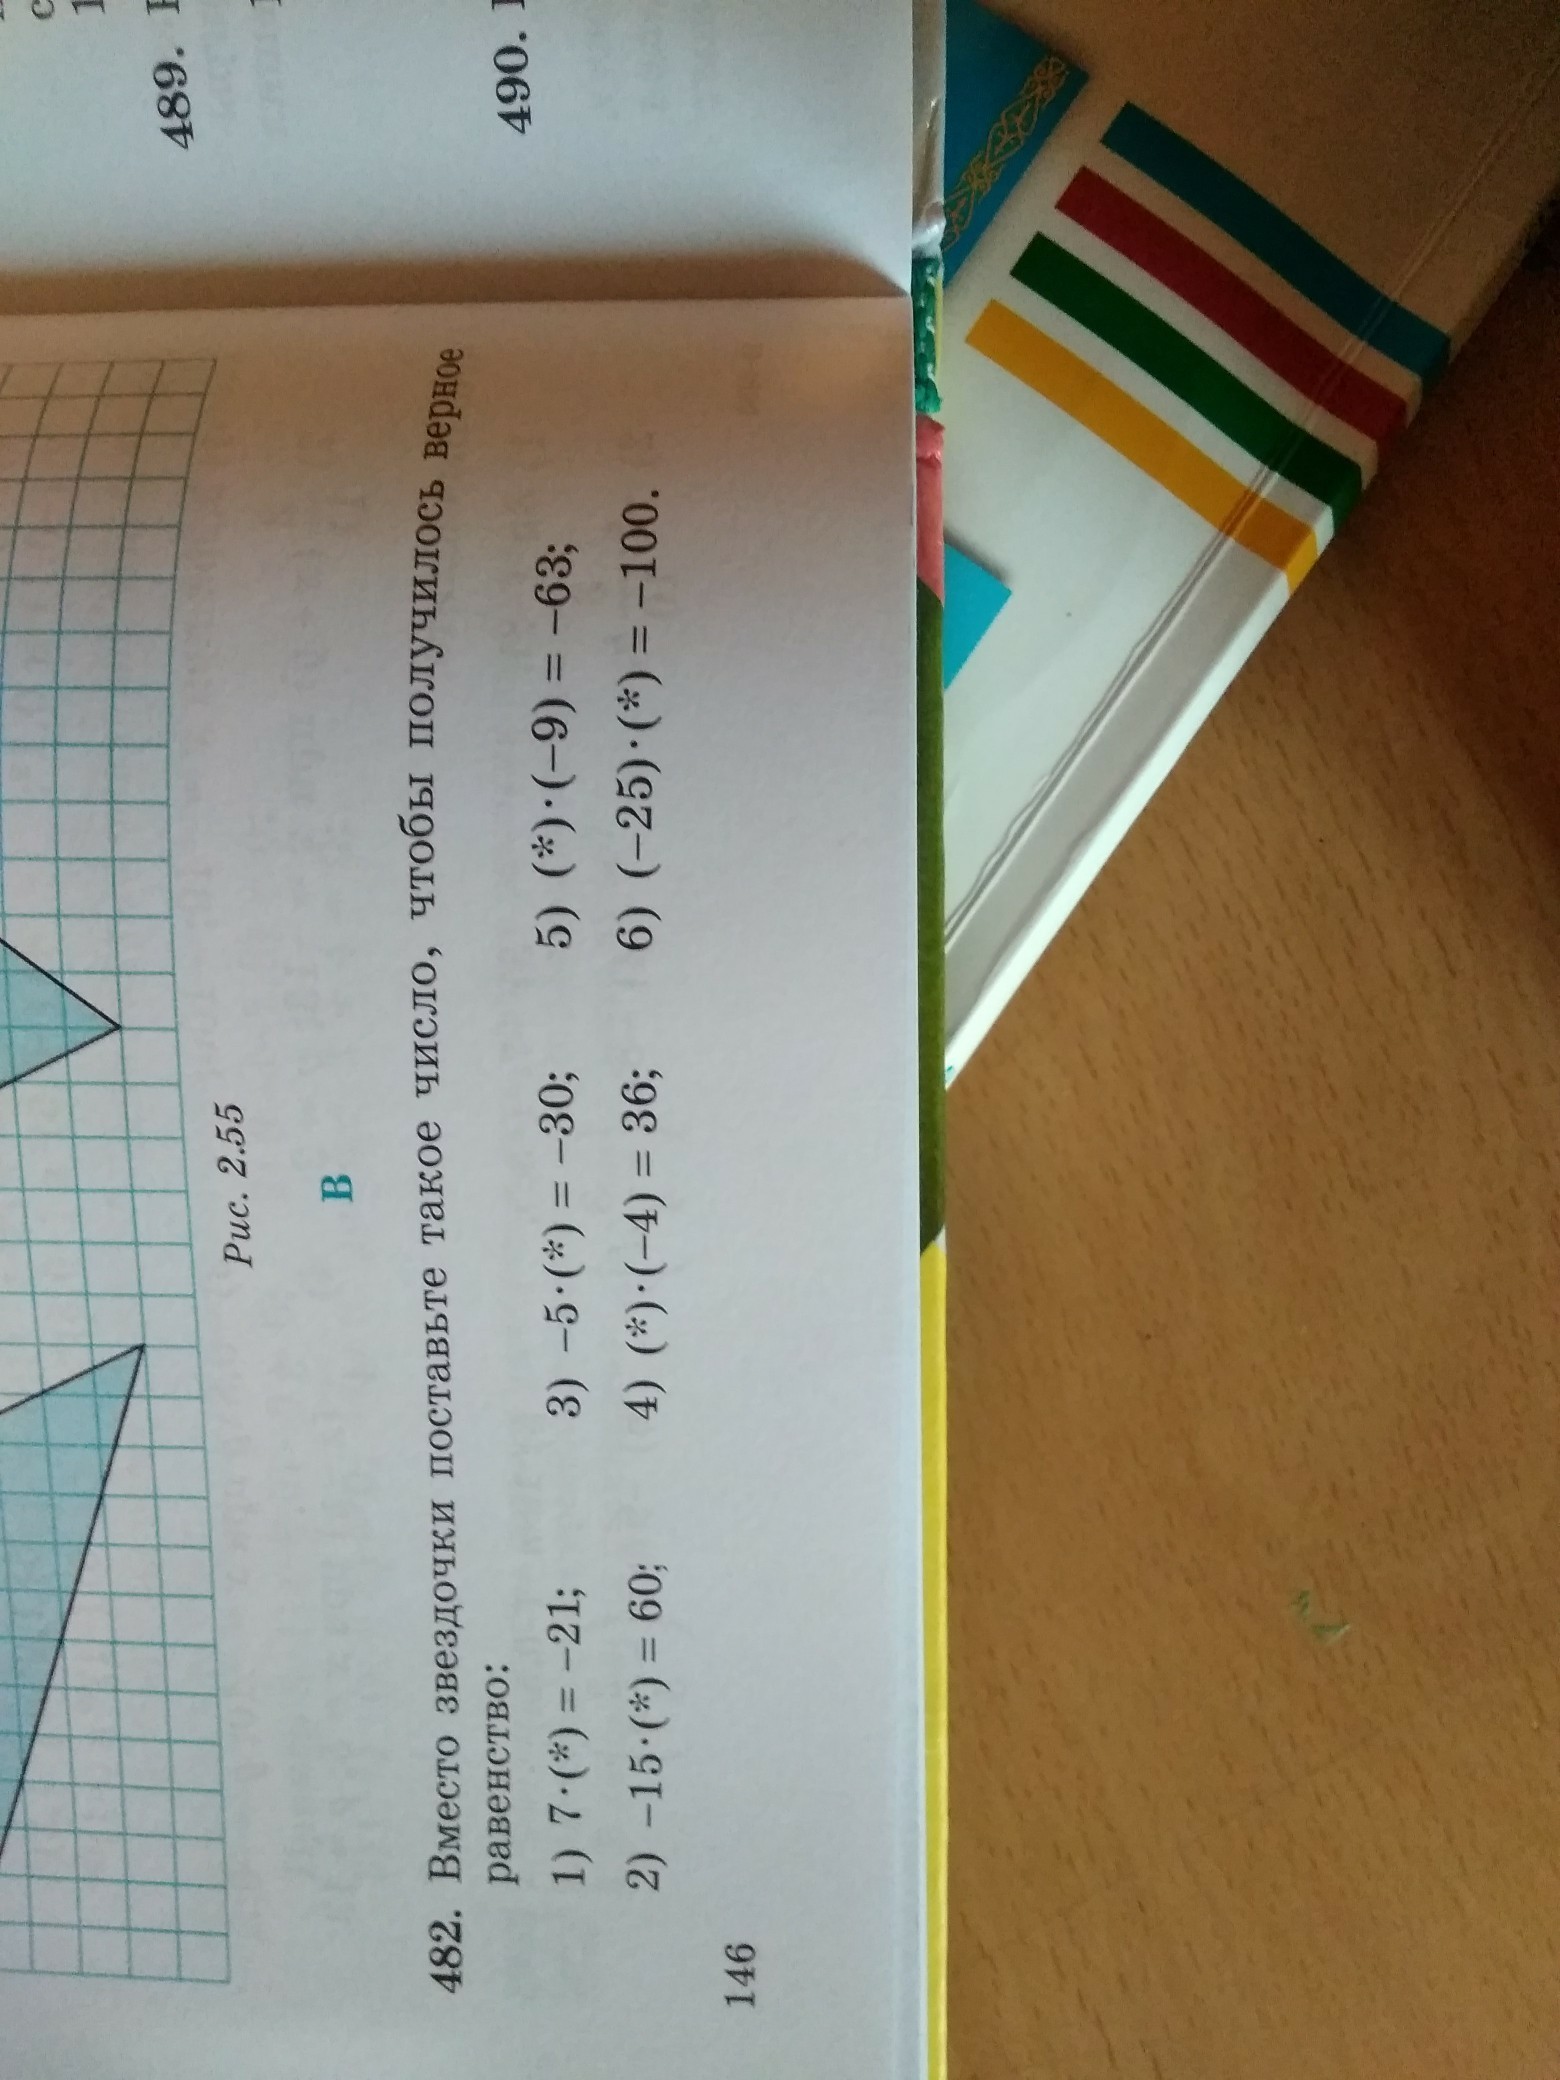 Рис. 2.55
В
482. Вместо звездочки поставьте такое число, чтобы получилось верное
равенство:
1) 7·(*) = –21; 3) –5·(*) = –30; 5) (*)·(–9) = –63;
2) –15·(*) = 60; 4) (*)·(–4) = 36; 6) (–25)·(*) = –100.
146
489.
490.